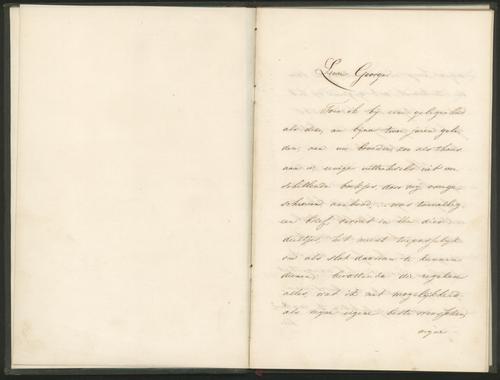 Lieve George
Toen ik bij een gelegenheid
als deze, nu bijna twee jaren gele-
den, aan uw broeder, zoo als thans
aan u, eenige uittreksels uit ver-
schillende boekjes, door mij overge-
schreven aanbood, was toevallig
een brief, in
deeltjes, het meest toepasselijk
om als slot daarvan te kunnen
dienen; bevattende die regelen
alles, wat ik met mogelijkheid
als mijne eigene beste wenschen,
mijne